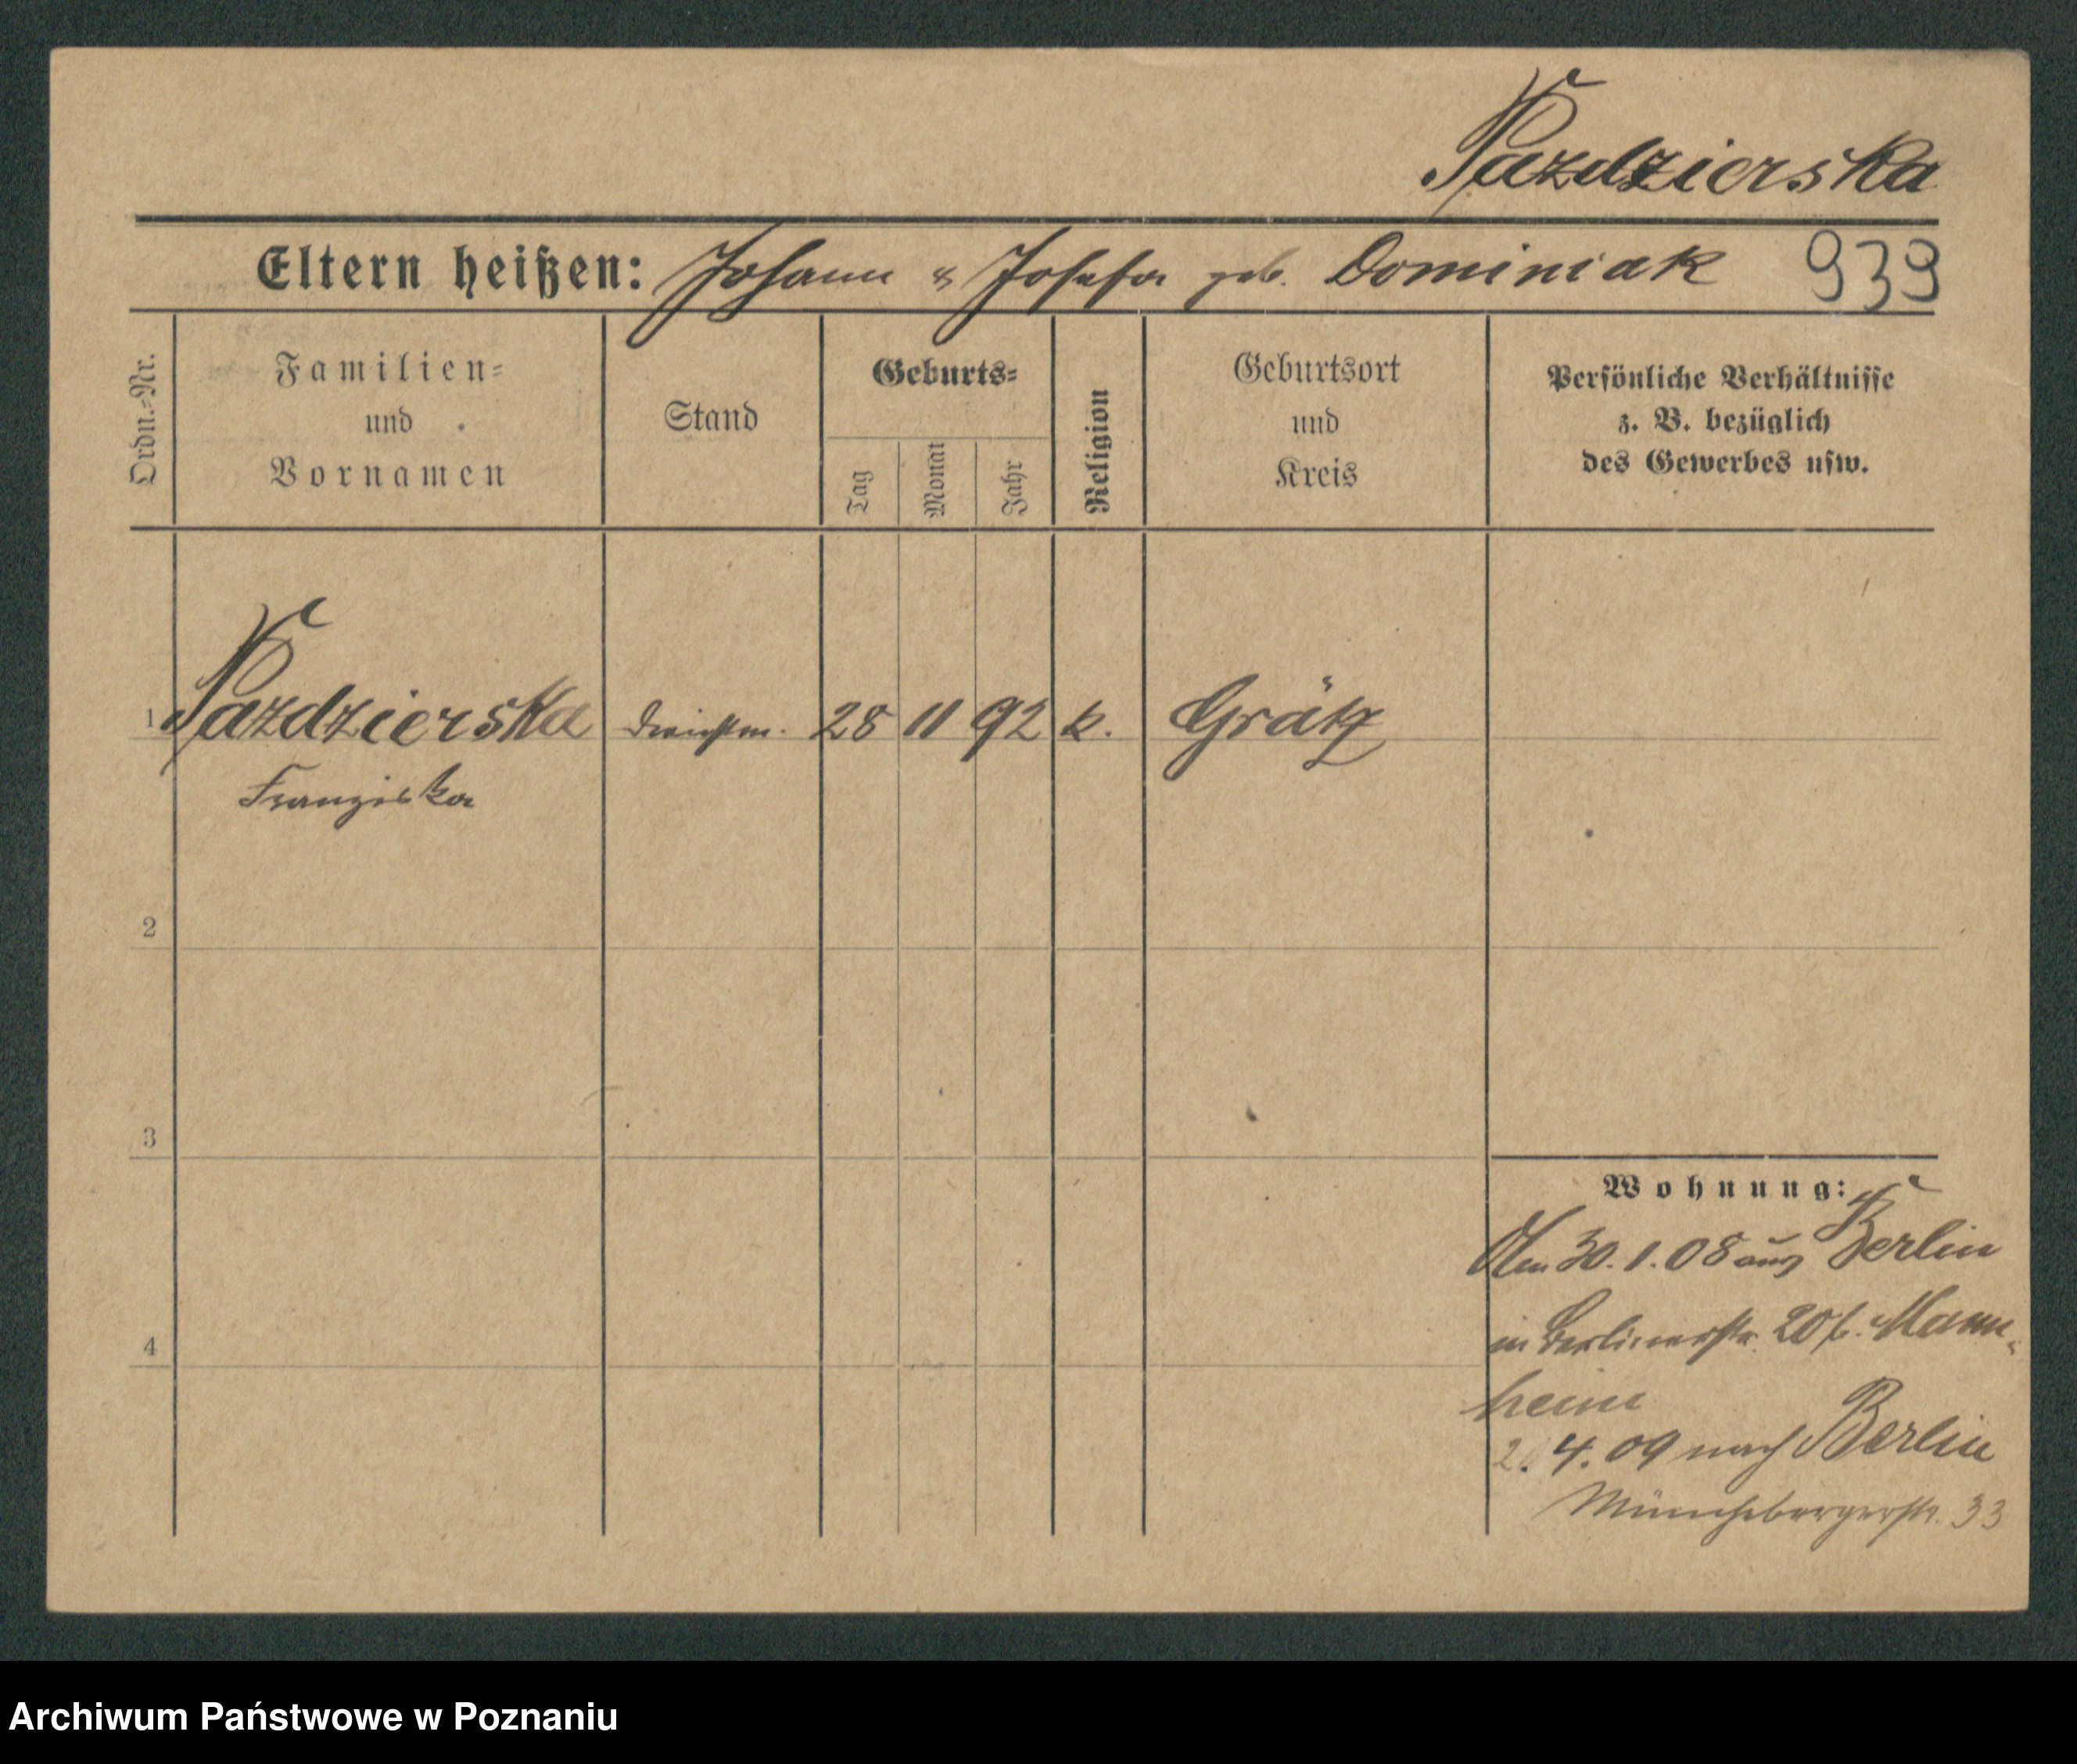 Pazdzierska
Eltern heißen: Johann & Josefa geb. Dominiak 939
Ordn.-Nr.
Familien-
und
Vornamen
Stand
Geburts-
Tag
Monat
Jahr
Religion
Geburtsort
und
Kreis
Persönliche Verhältnisse
z. B. bezüglich
des Gewerbes usw.
1 Pazdzierska Dienstm. 28 11 92 k. Grätz
Franziska
2
3
4
Wohnung:
Am 30.1.08 aus Berlin
in Berlinerstr. 20 b. Mann-
heim
2. 4. 09 nach Berlin
Münchebergerstr. 33
Archiwum Państwowe w Poznaniu